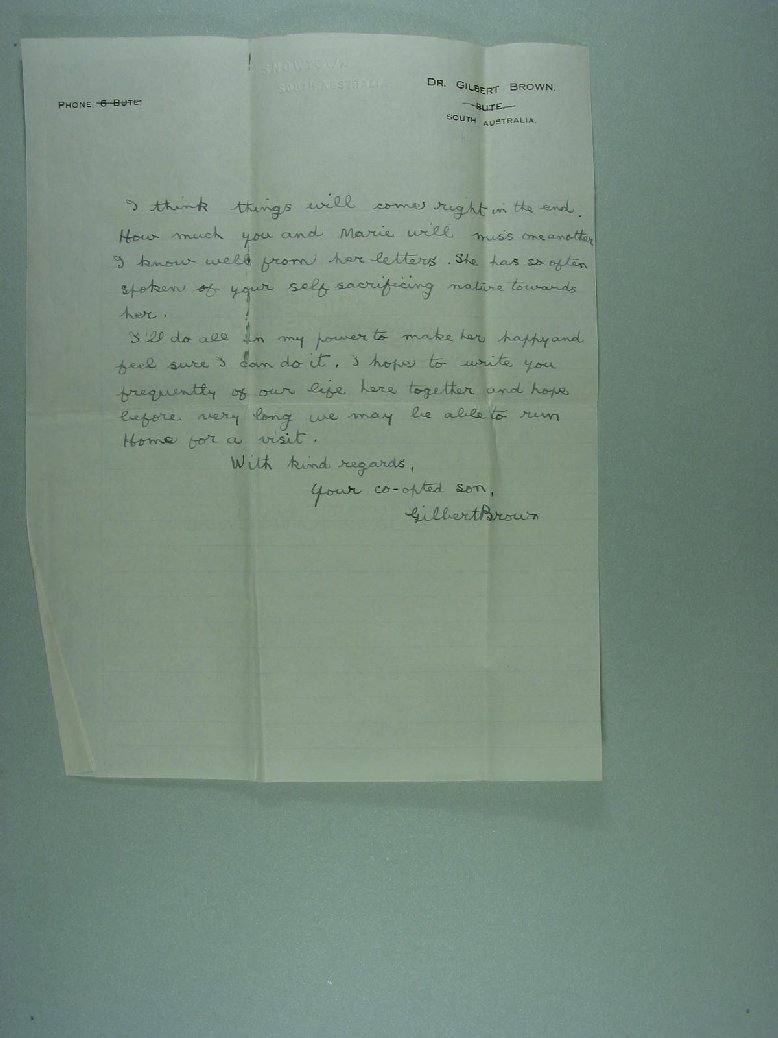 PHONE 6 BUTE.
DR. GILBERT BROWN.
BUTE
SOUTH AUSTRALIA.
I think things will come right in the end.
How much you and Marie will miss one another
I know well from her letters. She has so often
spoken of your self sacrificing nature towards
her.
I'll do all in my power to make her happy and
feel sure I can do it. I hope to write you
frequently of our life here together and hope
before very long we may be able to run
Home for a visit.
With kind regards,
Your co-opted son,
Gilbert Brown